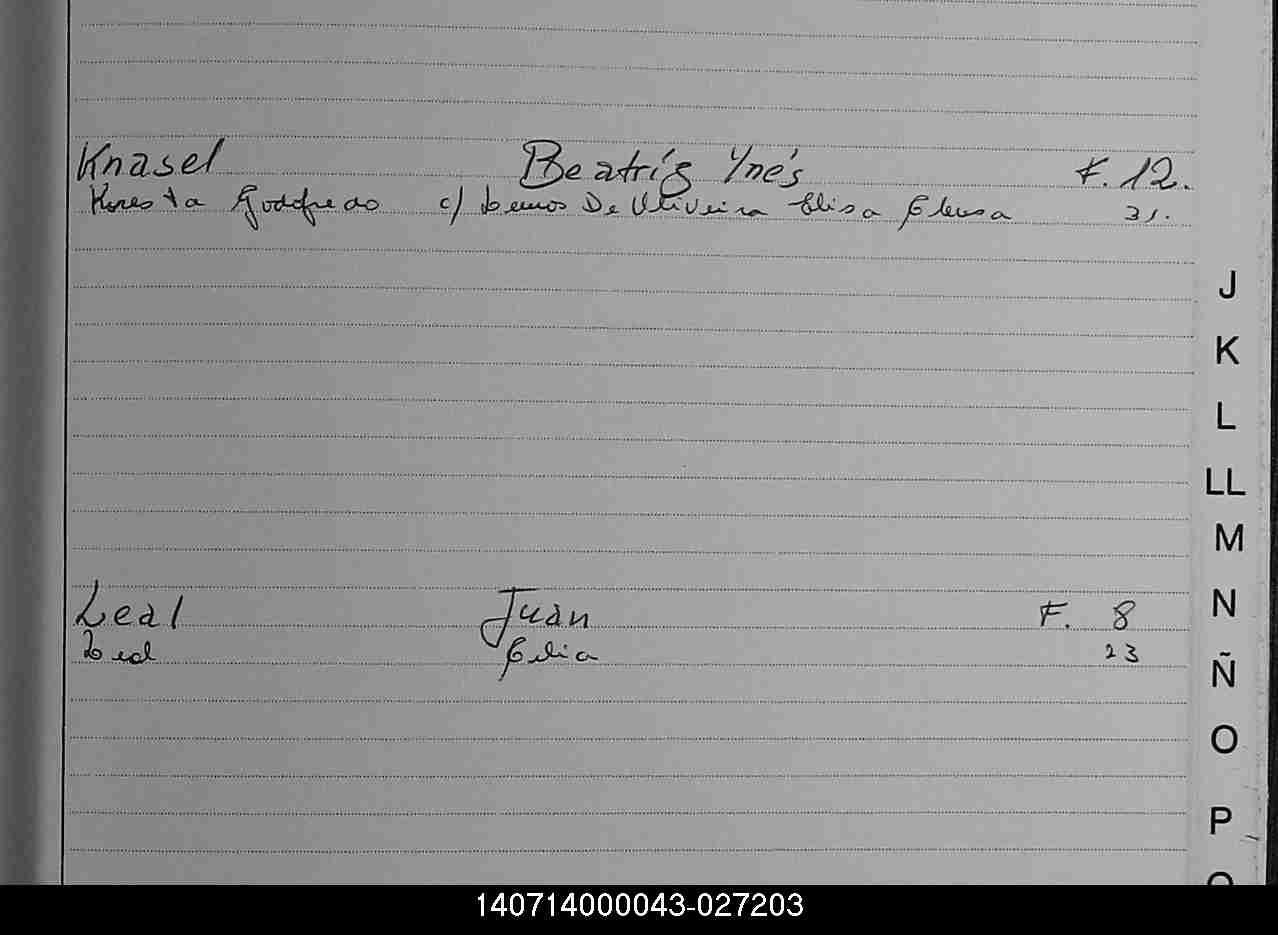 Knasel Beatríz Ynés F. 12.
Keresta Godofredo c/ Lemos De Oliveira Elisa 31.
J
K
L
LL
M
Leal Juán F. 8
N
Leal Celia 23
Ñ
O
P
140714000043-027203